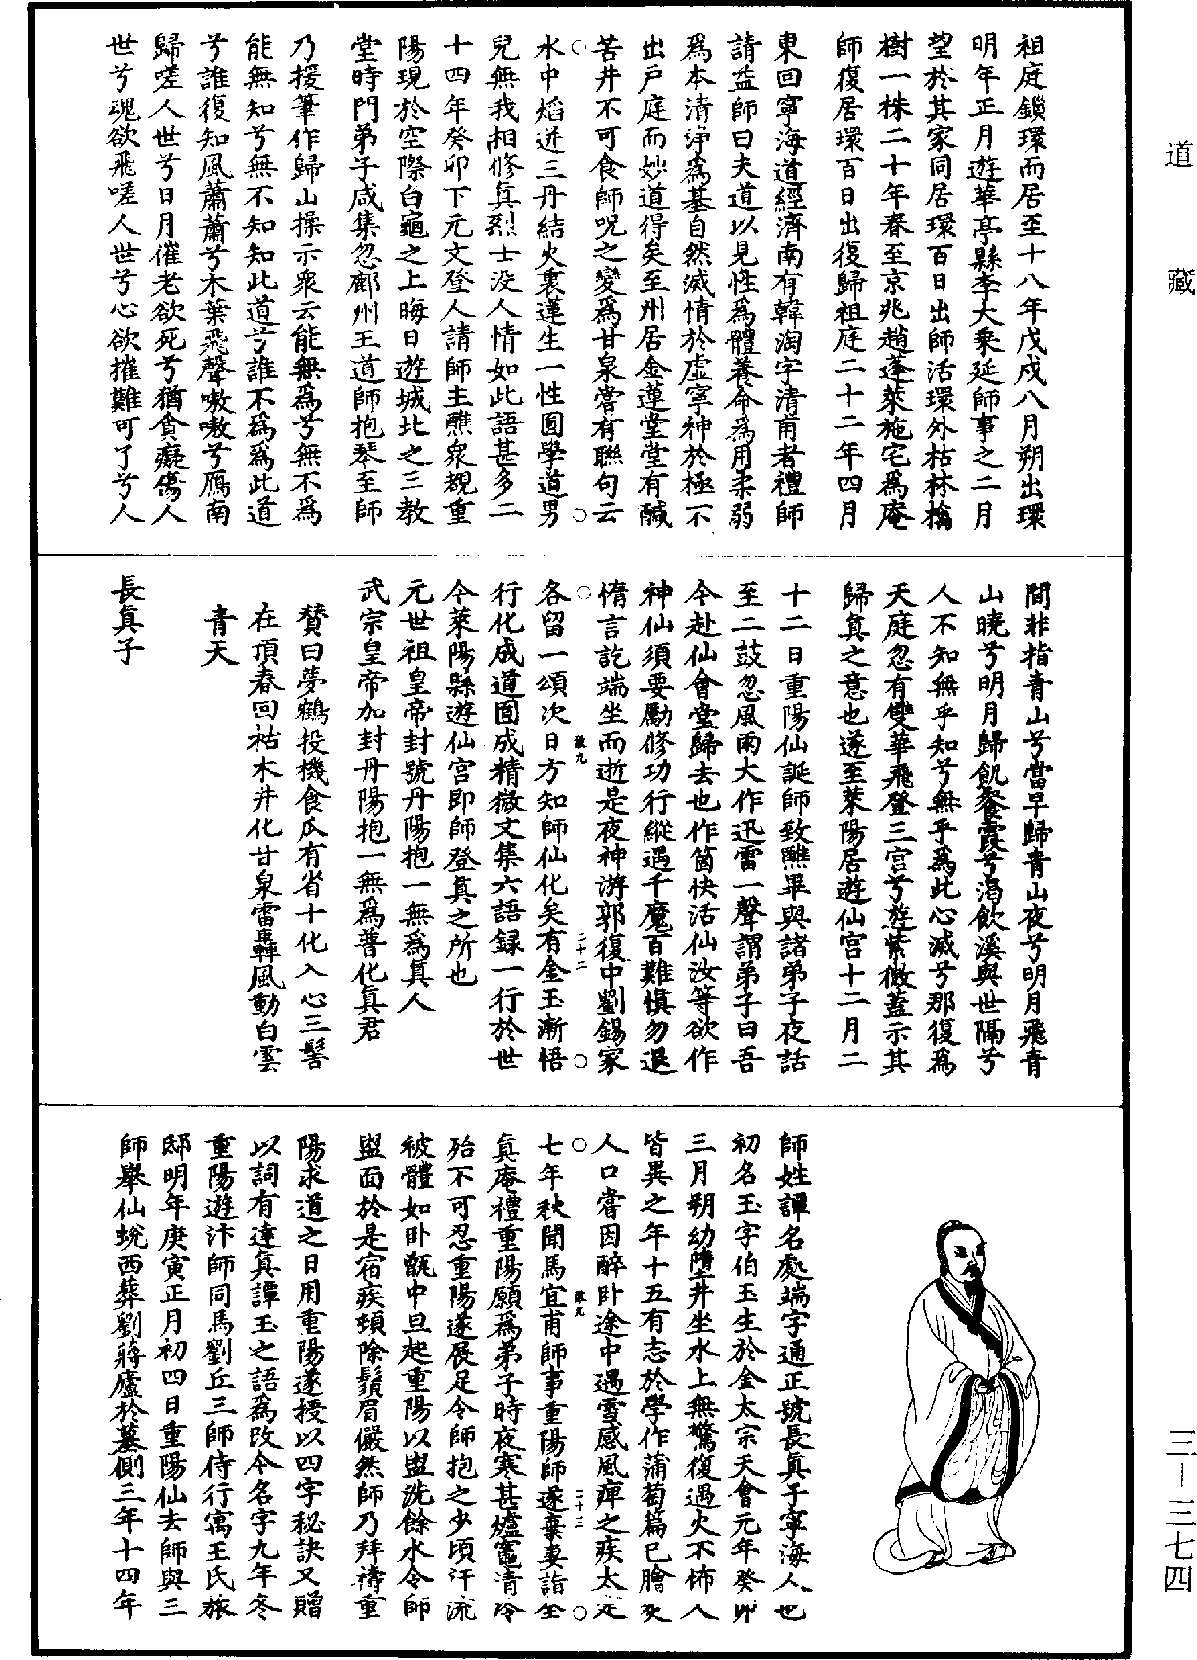 道藏
祖庭鎖環而居至十八年戊戌八月朔出環
明年正月遊華亭縣李大乘延師事之二月
望於其家同居環百日出師活環外枯林檎
樹一株二十年春至京兆趙蓬萊施宅爲庵
師復居環百日出復歸祖庭二十二年四月
東回寧海道經濟南有韓淘字清甫者禮師
請益師曰夫道以見性爲體養命爲用柔弱
爲本清淨爲基自然滅情於虛寧神於極不
出戶庭而妙道得矣至州居金蓮堂堂有鹹
苦井不可食師呪之變爲甘泉嘗有聯句云
水中焰迸三丹結火裏蓮生一性圓學道男
兒無我相修真烈士没人情如此語甚多二
十四年癸卯下元文登人請師主醮衆覩重
陽現於空際白龜之上晦日遊城北之三教
堂時門弟子咸集忽鄜州王道師抱琴至師
乃援筆作歸山操示衆云能無爲兮無不爲
能無知兮無不知知此道兮誰不爲爲此道
兮誰復知風蕭蕭兮木葉飛聲嗷嗷兮鴈南
歸嗟人世兮日月催老欲死兮猶貪癡傷人
世兮魂欲飛嗟人世兮心欲摧難可了兮人
間非指青山兮當早歸青山夜兮明月飛青
山曉兮明月歸飢餐霞兮渴飲溪與世隔兮
人不知無乎知兮無乎爲此心滅兮那復爲
天庭忽有雙華飛登三宮兮遊紫微蓋示其
歸真之意也遂至萊陽居遊仙宮十二月二
十二日重陽仙誕師致醮畢與諸弟子夜話
至二鼓忽風雨大作迅雷一聲謂弟子曰吾
今赴仙會堂歸去也作箇快活仙汝等欲作
神仙須要勵修功行縱遇千魔百難慎勿退
惰言訖端坐而逝是夜神游郭復中劉錫家
各留一頌次日方知師仙化矣有金玉漸悟
行化成道圓成精微文集六語録一行於世
今萊陽縣遊仙宮即師登真之所也
元世祖皇帝封號丹陽抱一無爲真人
武宗皇帝加封丹陽抱一無爲普化真君
贊曰夢鶴投機食瓜有省十化入心三髻
在頂春回枯木井化甘泉雷轟風動白雲
青天
長真子
師姓譚名處端字通正號長真子寧海人也
初名玉字伯玉生於金太宗天會元年癸卯
三月朔幼墮井坐水上無驚復遇火不怖人
皆異之年十五有志於學作蒲萄篇已膾炙
人口嘗因醉卧途中遇雪感風痺之疾太定
七年秋聞馬宜甫師事重陽師遂棄妻詣全
真庵禮重陽願爲弟子時夜寒甚爐竈清冷
殆不可忍重陽遂展足令師抱之少頃汗流
被體如卧甑中旦起重陽以盥洗餘水令師
盥面於是宿疾頓除鬚眉儼然師乃拜禱重
陽求道之日用重陽遂授以四字秘訣又贈
以詞有達真譚玉之語爲改今名字九年冬
重陽遊汴師同馬劉丘三師侍行寓王氏旅
邸明年庚寅正月初四日重陽仙去師與三
師舉仙蛻西葬劉蔣廬於墓側三年十四年
三－三七四